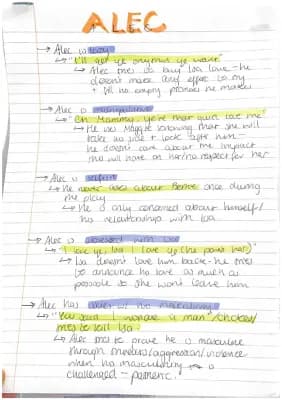 ALEC
→ Alec is
→ "I'll get ye anything ye want"
↳ Alec tries to buy Isa love - he
doesn't make any effort to try
+ fill his empty promises he makes
→ Alec is manipulative
→ "Oh Mammy, ye're that good tae me"
↳ He uses Maggie knowing that she will
take his side + look after him -
he doesn't care about the impact
this will have on her/no respect for her
→ Alec is selfish
→ He never asks about Bertie once during
the play
↳ He is only concerned about himself/
his relationship with Isa
→ Alec is obsessed with Isa
→ "I love ye, Isa I love ye (he paws her)"
↳ Isa doesn't love him back - he tries
to announce his love as much as
possible so she won't leave him
→ Alec has issues w/ his masculinity
→ "You said I wasnae a man"/chokes/
tries to kill Isa
↳ Alec tries to prove he is masculine
through threats/aggression/violence
when his masculinity is
challenged - pathetic!